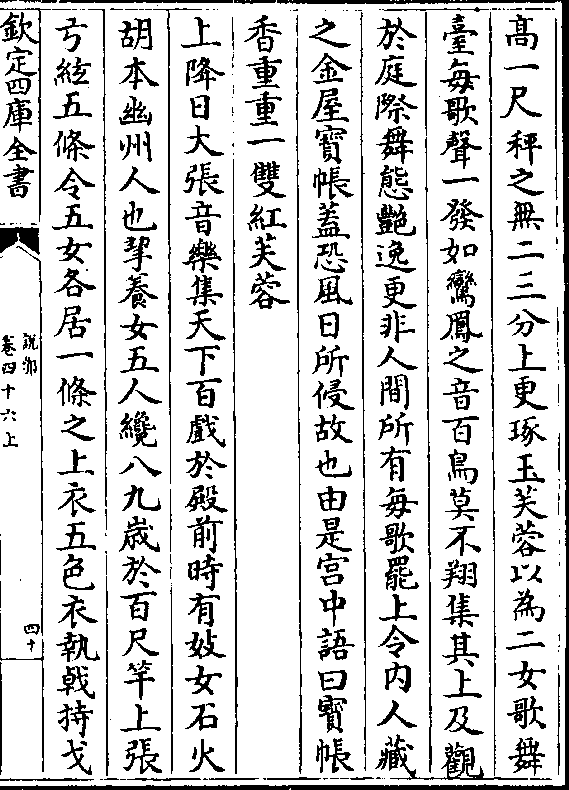 高一尺秤之無二三分上更琢玉芙蓉以為二女歌舞
臺每歌聲一發如鸞鳳之音百鳥莫不翔集其上及觀
於庭際舞態艷逸更非人間所有每歌罷上令内人藏
之金屋寳帳蓋恐風日所侵故也由是宫中語曰寳帳
香重重一雙紅芙蓉
上降日大張音樂集天下百戲於殿前時有妓女石火
胡本幽州人也挈養女五人纔八九歳於百尺竿上張
弓絃五條令五女各居一條之上衣五色衣執戟持戈
欽定四庫全書
說郛
卷四十六上
四十